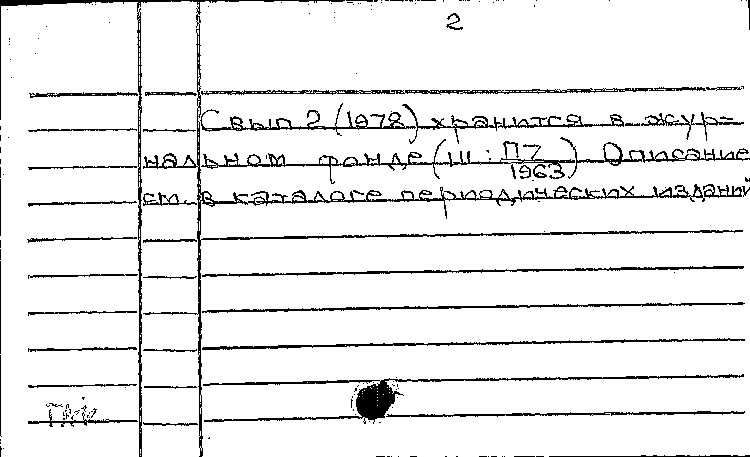 2
С вып 2 (1978) хранится в жур=
нальном фонде (Ш : П7/1963) Описание
см. в каталоге периодических изданий